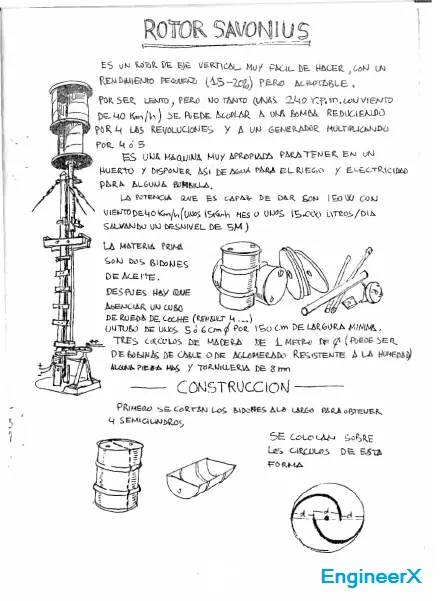 ROTOR SAVONIUS
ES UN ROTOR DE EJE VERTICAL MUY FACIL DE HACER, CON UN
RENDIMIENTO PEQUEÑO (15-20%) PERO ACEPTABLE.
POR SER LENTO, PERO NO TANTO (UNAS 240 r.p.m. CON VIENTO
DE 40 Km/h) SE PUEDE ACOPLAR A UNA BOMBA REDUCIENDO
POR 4 LAS REVOLUCIONES Y A UN GENERADOR MULTIPLICANDO
POR 4 ó 5
ES UNA MAQUINA MUY APROPIADA PARA TENER EN UN
HUERTO Y DISPONER ASI DE AGUA PARA EL RIEGO Y ELECTRICIDAD
PARA ALGUNA BOMBILLA.
LA POTENCIA QUE ES CAPAZ DE DAR SON 150W CON
VIENTO DE 40 Km/h (UNOS 15 Kwh MES O UNOS 15.000 LITROS/DIA
SALVANDO UN DESNIVEL DE 5M)
LA MATERIA PRIMA
SON DOS BIDONES
DE ACEITE.
DESPUES HAY QUE
AGENCIAR UN CUBO
DE RUEDA DE COCHE (RENAULT 4...)
UN TUBO DE UNOS 5 ó 6 cm φ POR 150 cm DE LARGURA MINIMA.
TRES CIRCULOS DE MADERA DE 1 METRO DE φ (PUEDE SER
DE BOBINAS DE CABLE O DE AGLOMERADO RESISTENTE A LA HUMEDAD)
ALGUNA PIEZA MAS Y TORNILLERIA DE 8 mm
CONSTRUCCION
PRIMERO SE CORTAN LOS BIDONES A LO LARGO PARA OBTENER
4 SEMICILINDROS
SE COLOCAN SOBRE
LOS CIRCULOS DE ESTA
FORMA
d d d
EngineerX